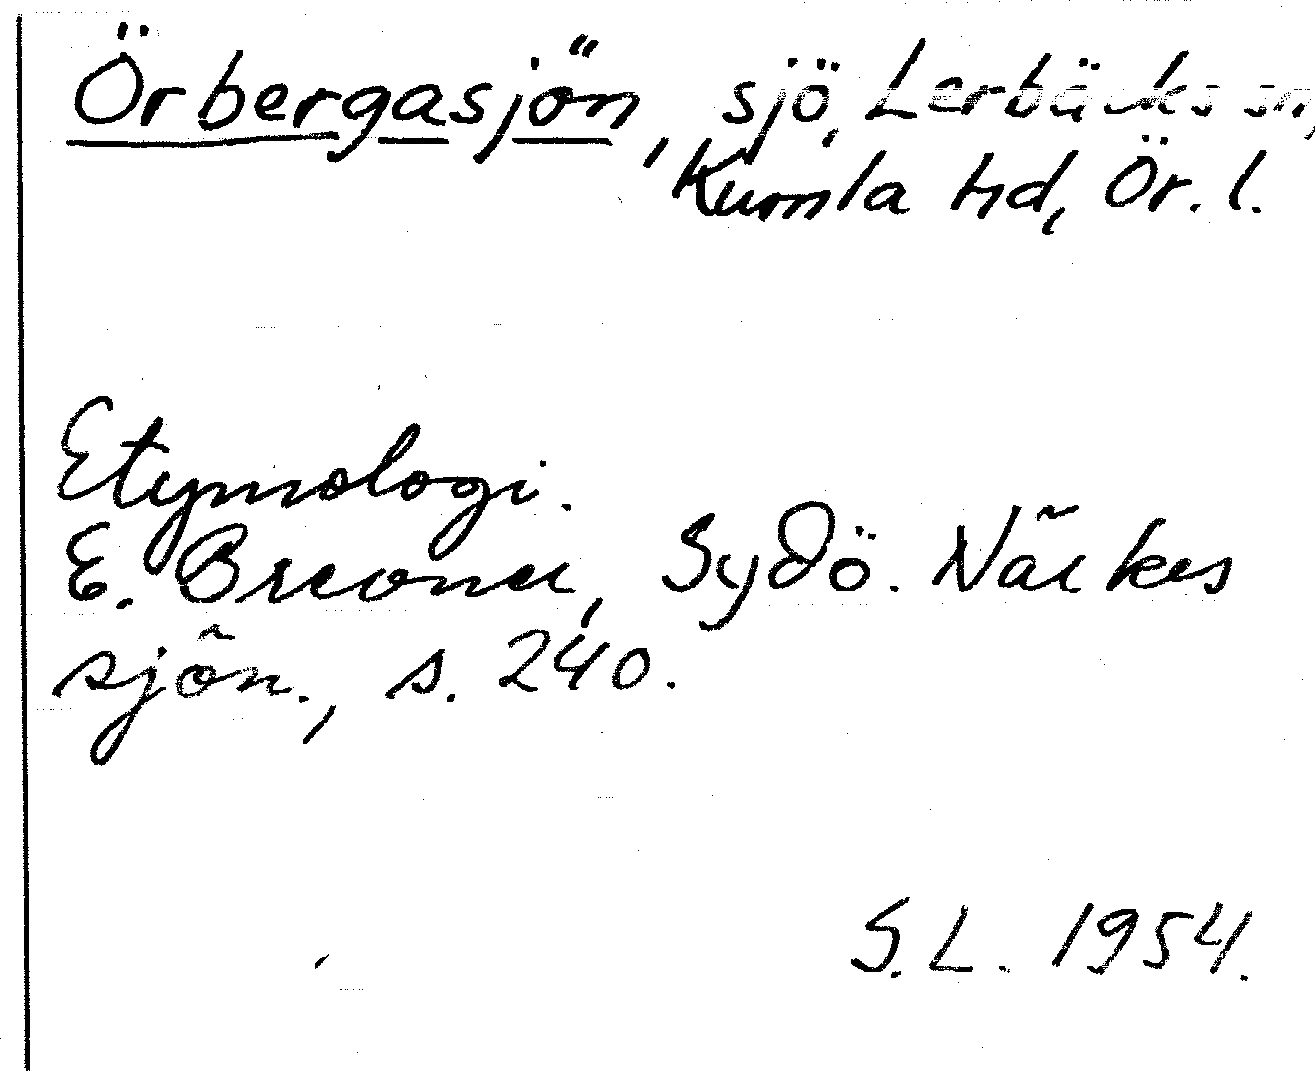 Örbergasjön, sjö, Lerbäcks sn,
Kumla hd, Ör. l.
Etymologi.
E. Brevner, Sydö. Närkes
sjön., s. 240.
S. L. 1954.